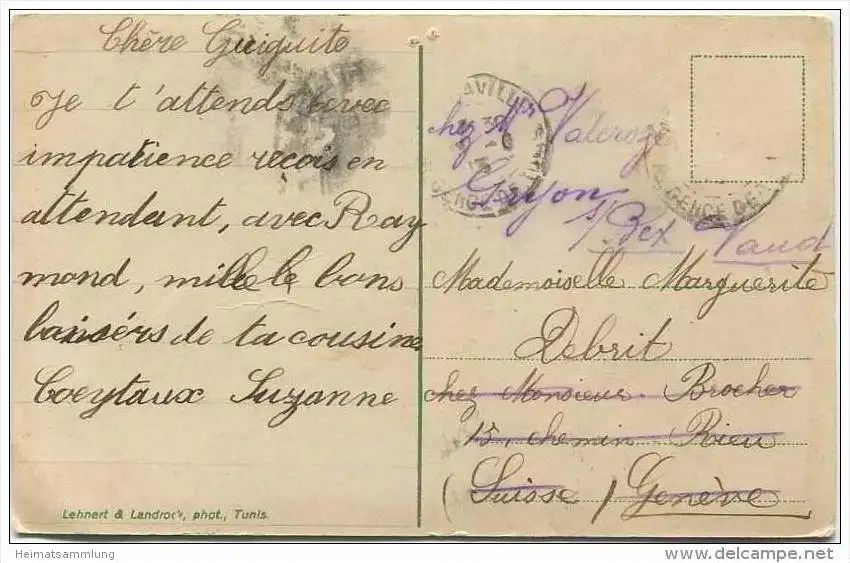 Chère Guiguite
Je t'attends avec
impatience reçois en
attendant, avec Ray
mond, mille le bons
baisérs de ta cousine
Coeytaux Suzanne
Lehnert & Landrock, phot., Tunis.
chez Mr Valcroze
Gryon
s/Bex Vaud
Mademoiselle Marguerite
Debrit
chez Monsieur Brocher
15, chemin Rieu
(Suisse) Genève
Heimatsammlung
www.delcampe.net